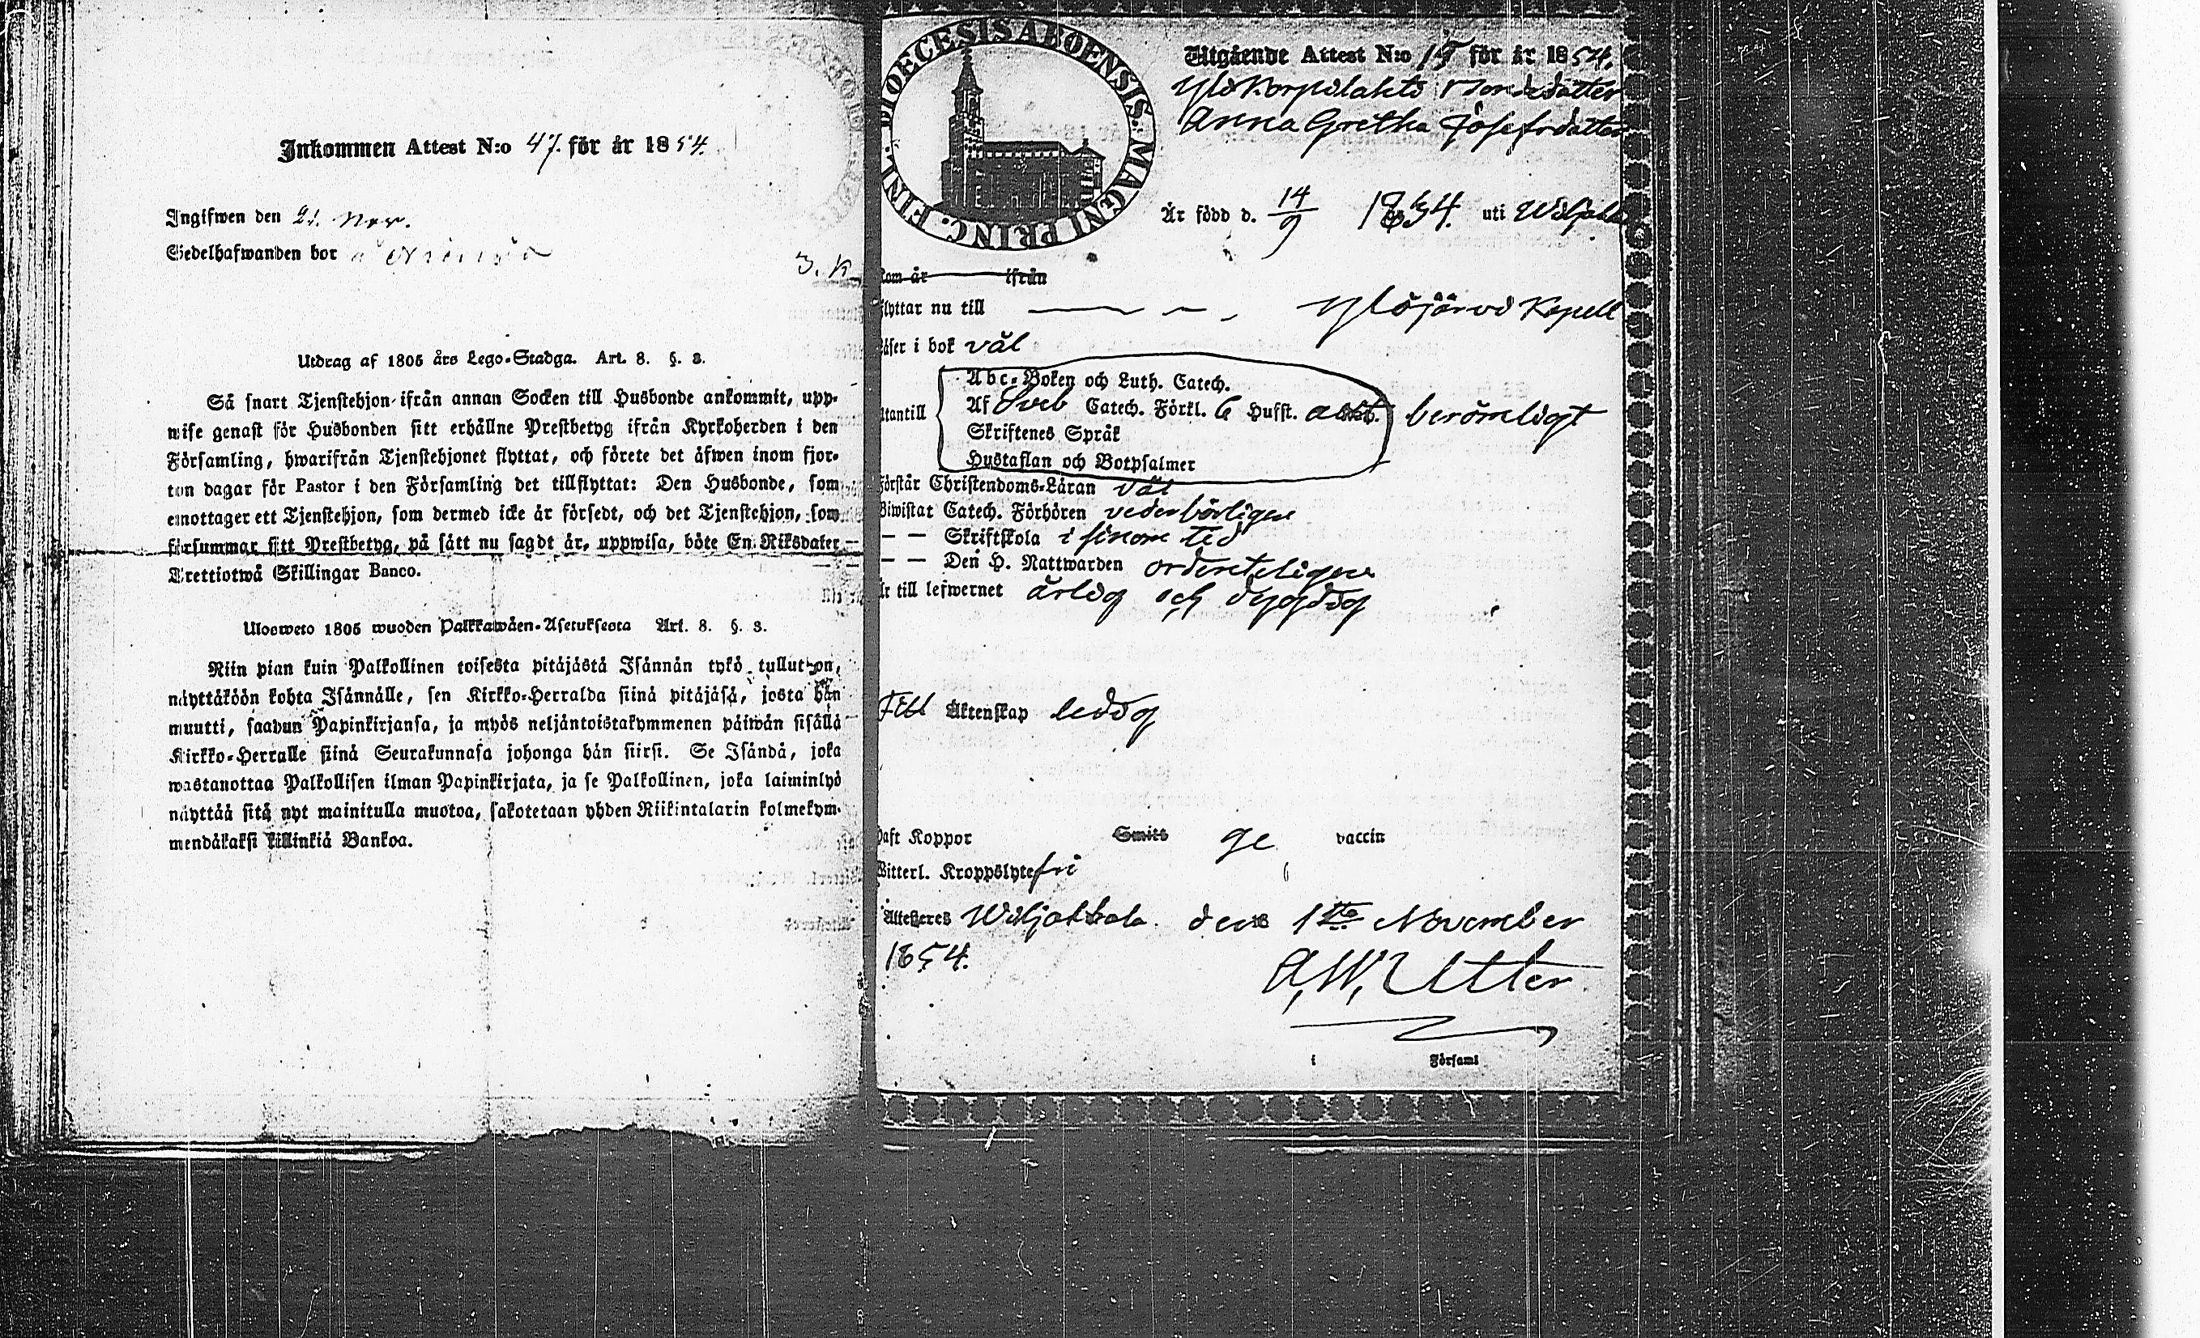 Inkommen Attest N:o 47. för år 1854.
Ingifwen den 21. Nov.
Sedelhafwanden bor
3. K
Utdrag af 1805 års Lego-Stadga. Art. 8. §. 3.
Så snart Tjenstehjon ifrån annan Socken till Husbonde ankommit, upp-
wise genast för Husbonden sitt erhållne Prestbetyg ifrån Kyrkoherden i den
Församling, hwarifrån Tjenstehjonet flyttat, och förete det äfwen inom fjor-
ton dagar för Pastor i den Församling det tillflyttat: Den Husbonde, som
emottager ett Tjenstehjon, som dermed icke är försedt, och det Tjenstehjon, som
försummar sitt Prestbetyg, på sätt nu sagdt är, uppwisa, böte En Riksdaler
Trettiotwå Skillingar Banco.
Ulosweto 1805 wuoden Palkkawäen-Asetuksesta Art. 8. §. 3.
Niin pian kuin Palkollinen toisesta pitäjästä Isännän tykö tullut on,
näyttäköön kohta Isännälle, sen Kirkko-Herralda siinä pitäjäsä, josta hän
muutti, saadun Papinkirjansa, ja myös neljäntoistakymmenen päiwän sisällä
Kirkko-Herralle siinä Seurakunnasa johonga hän siirsi. Se Isändä, joka
wastanottaa Palkollisen ilman Papinkirjata, ja se Palkollinen, joka laiminlyö
näyttää sitä nyt mainitulla muotoa, sakotetaan yhden Riikintalarin kolmekym-
mendäkaksi killinkiä Bankoa.
DIOECESIS ABOENSIS. MAGNI PRINC. FINL.
Utgående Attest N:o 15 för år 1854.
Ylö Korpilahti Bondedotter
Anna Gretha Josefsdotter
Är född d. 14/9 1834. uti Wiljakk
Kom år ifrån
flyttar nu till Ylöjärvi Kapell
Läser i bok väl
Abc-Boken och Luth. Catech.
Utantill Af Sveb Catech. Förkl. 6 Hufst. berömligt
Skriftenes Språk
Hustaflan och Botpsalmer
Förstår Christendoms-Läran väl
Biwistat Catech. Förhören vederbörligen
— — Skriftskola i sinom tid
— — Den H. Nattwarden ordenteligen
Är till lefwernet ärlig och dygdig
Till Äktenskap ledig
Haft Koppor Smitt ge vaccin
Witterl. Kroppslyte fri
Attesteres Wiljakkala den 1sta November
1854.
A. W. Utter
i Församl